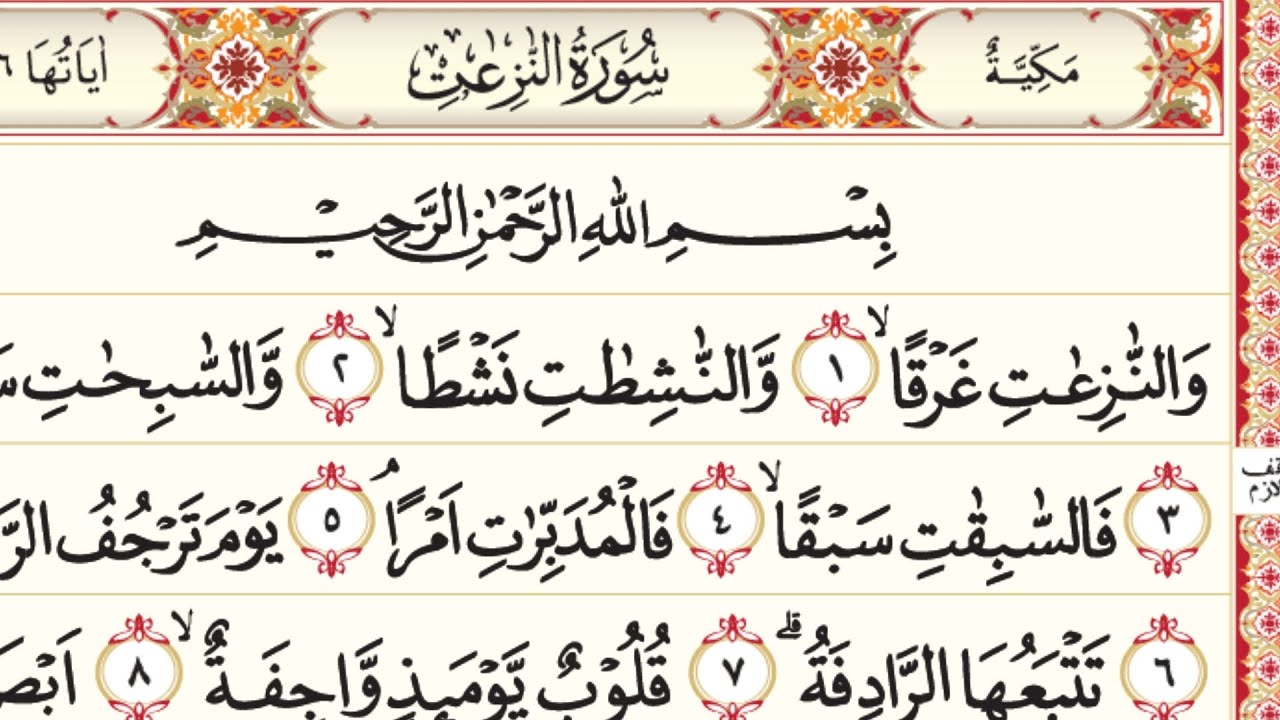 مَكِّيَّةٌ سُوْرَةُ النّٰزِعٰتِ اٰيَاتُهَا
بِسْمِ اللهِ الرَّحْمٰنِ الرَّحِيْمِ
وَالنّٰزِعٰتِ غَرْقًا ۙ ١ وَّالنّٰشِطٰتِ نَشْطًا ۙ ٢ وَّالسّٰبِحٰتِ
٣ فَالسّٰبِقٰتِ سَبْقًا ۙ ٤ فَالْمُدَبِّرٰتِ اَمْرًا ۘ ٥ يَوْمَ تَرْجُفُ
٦ تَتْبَعُهَا الرَّادِفَةُ ۗ ٧ قُلُوْبٌ يَّوْمَىِٕذٍ وَّاجِفَةٌ ۙ ٨